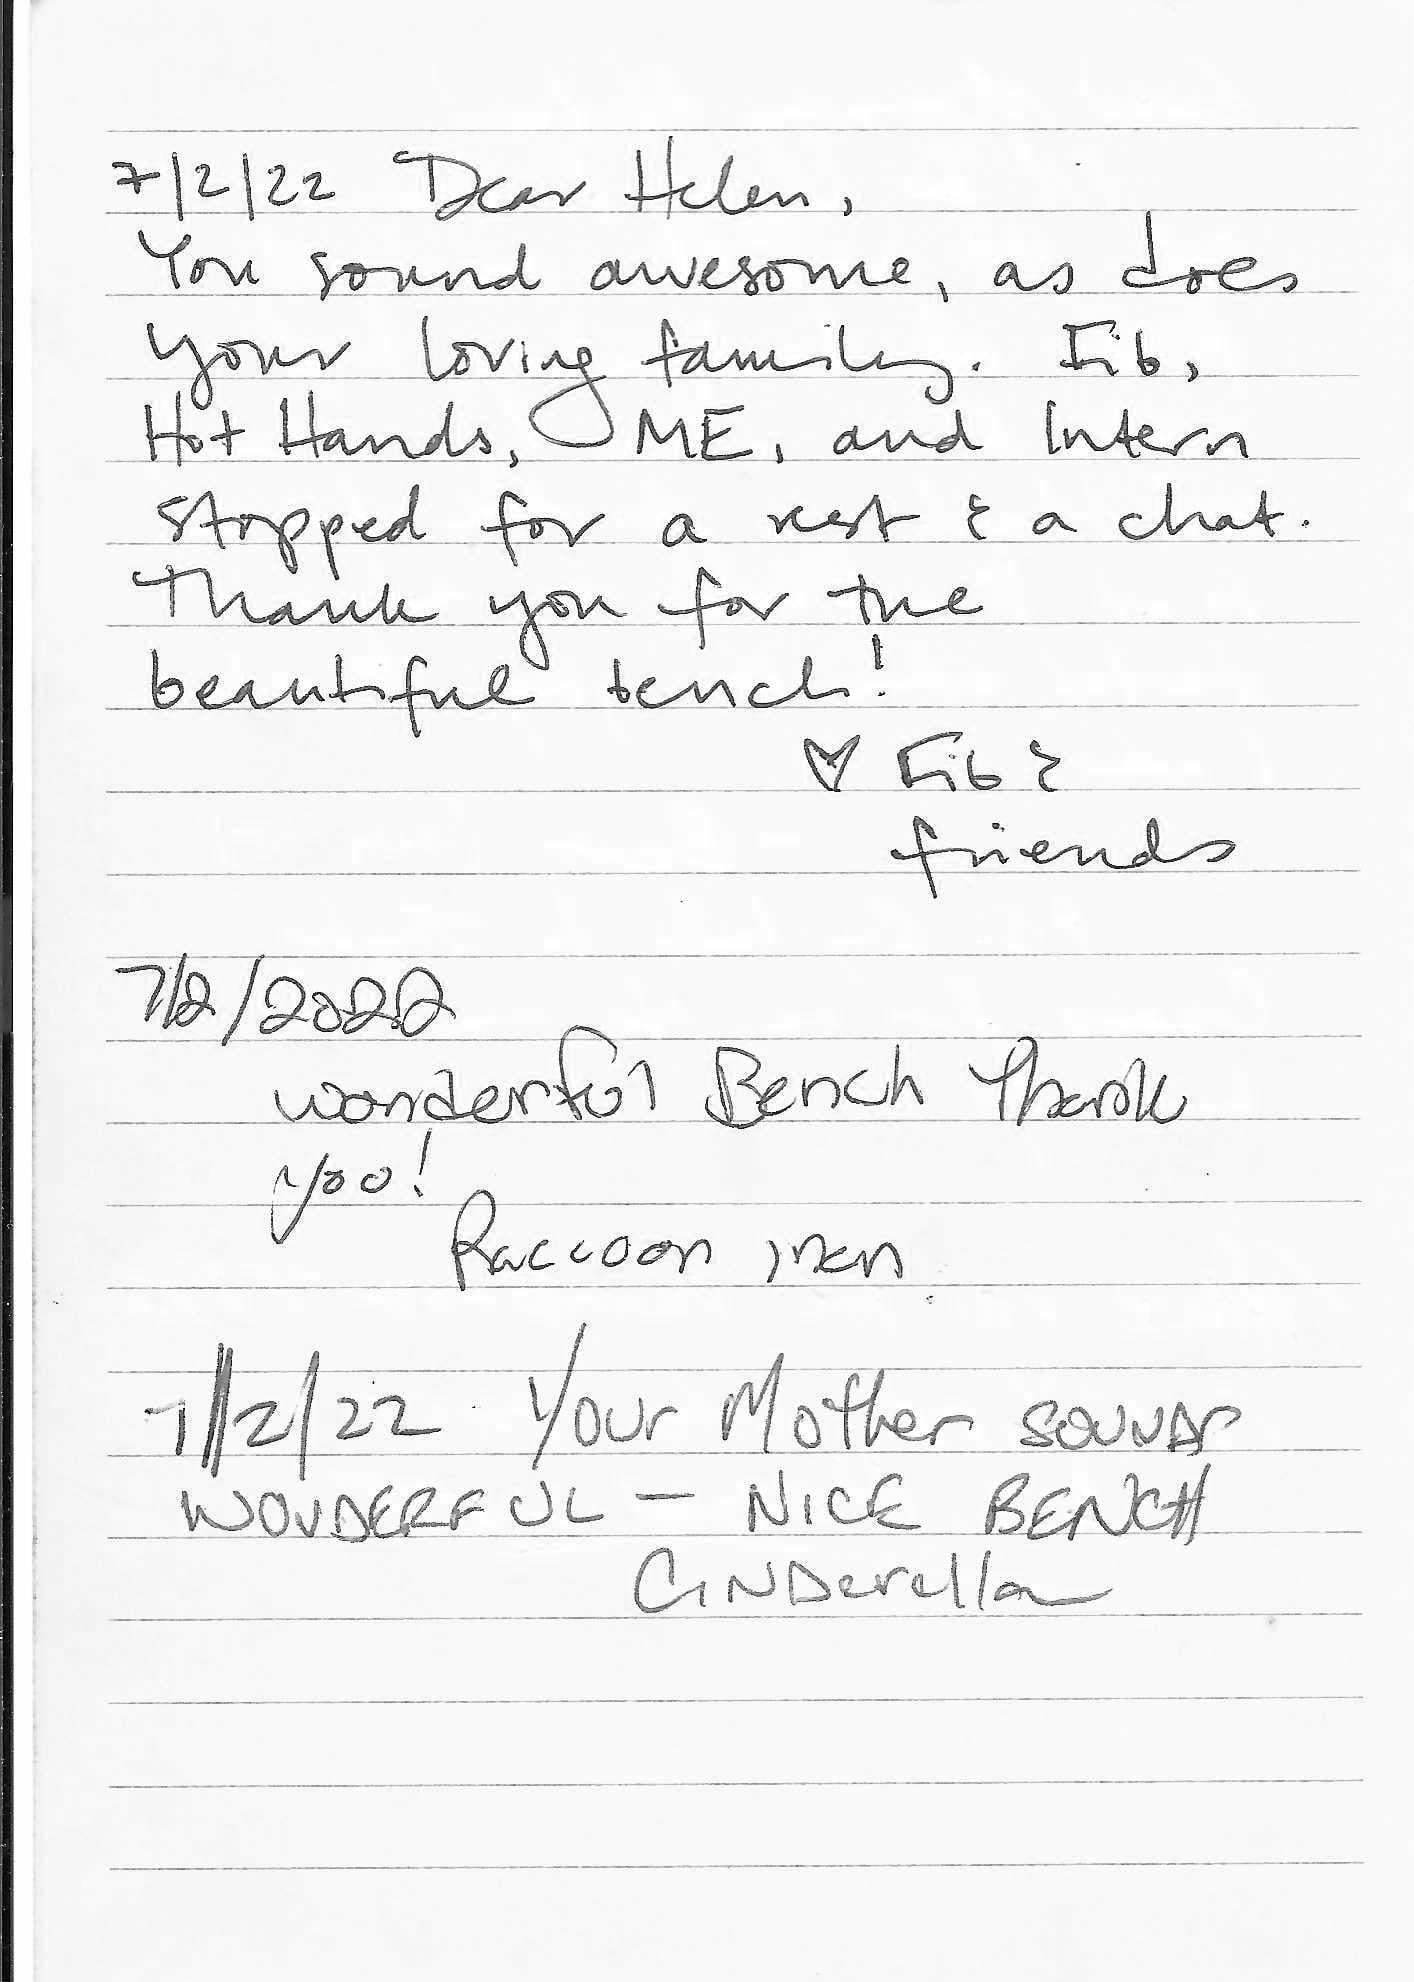 7/2/22 Dear Helen,
You sound awesome, as does
your loving family. Fib,
Hot Hands, ME, and Intern
stopped for a rest & a chat.
Thank you for the
beautiful bench!
♡ Fib &
friends
7/2/2022
wonderful Bench Thank
you!
Raccoon men
7/2/22 Your Mother SOUNDS
WONDERFUL - NICE BENCH
CINDerella